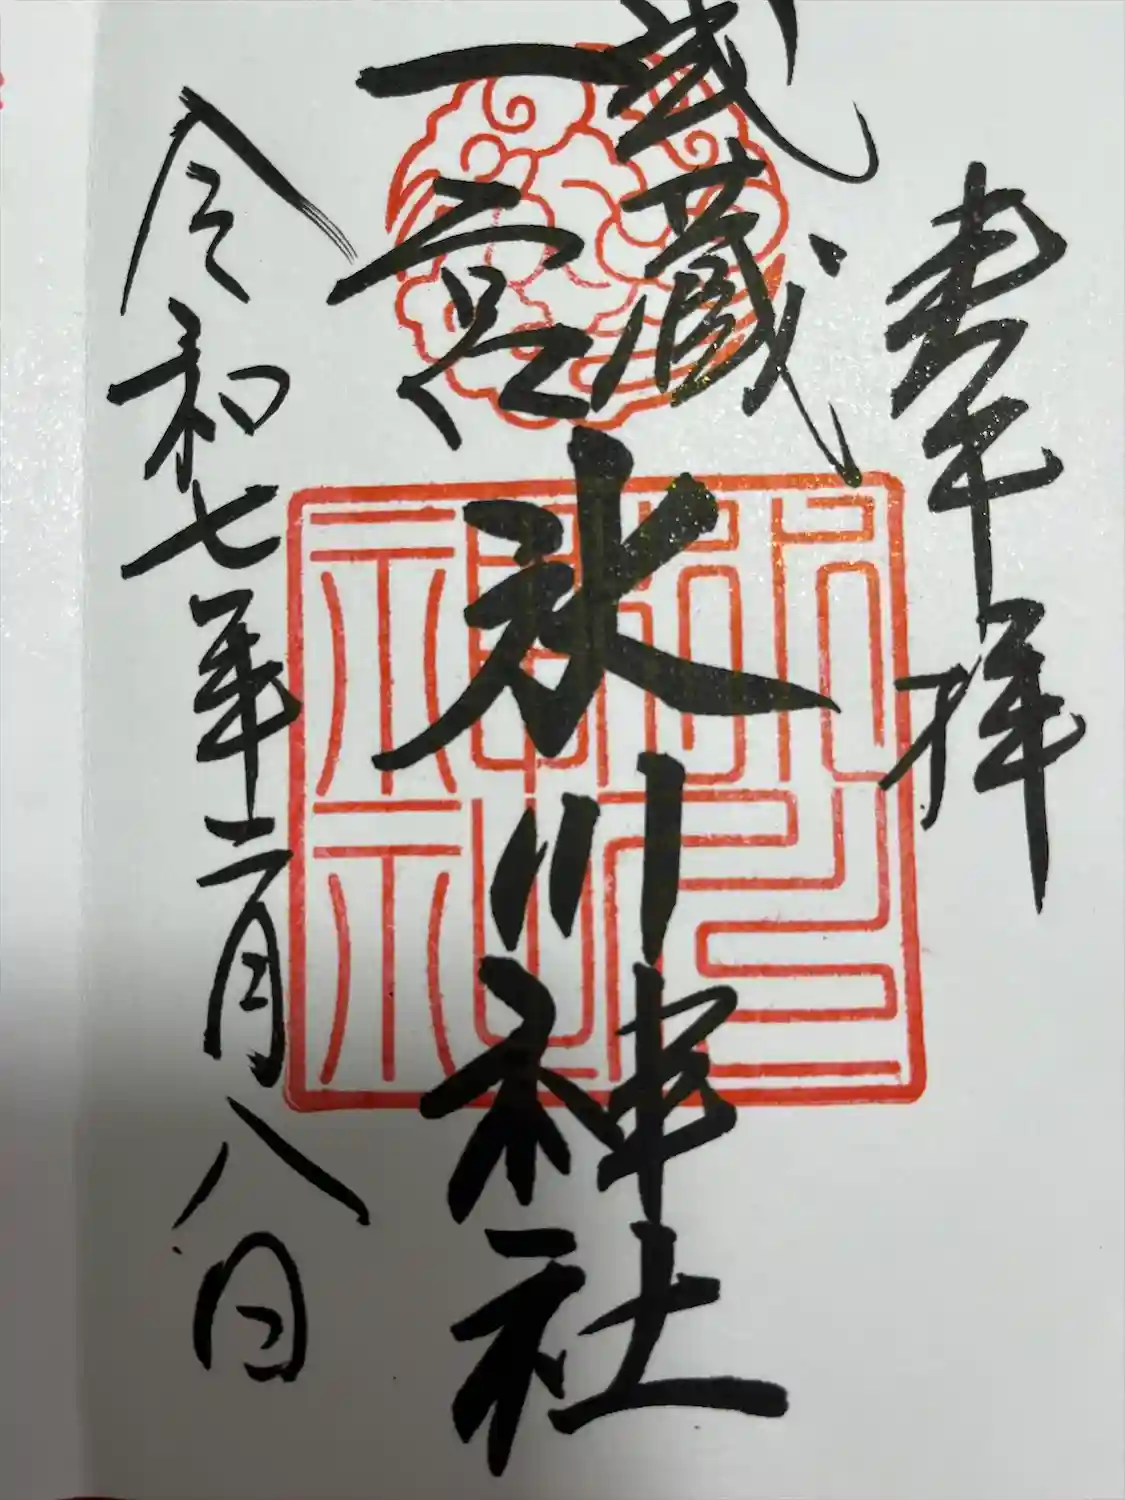 奉拝
武蔵
一宮
氷川神社
氷川神社
令和七年二月八日